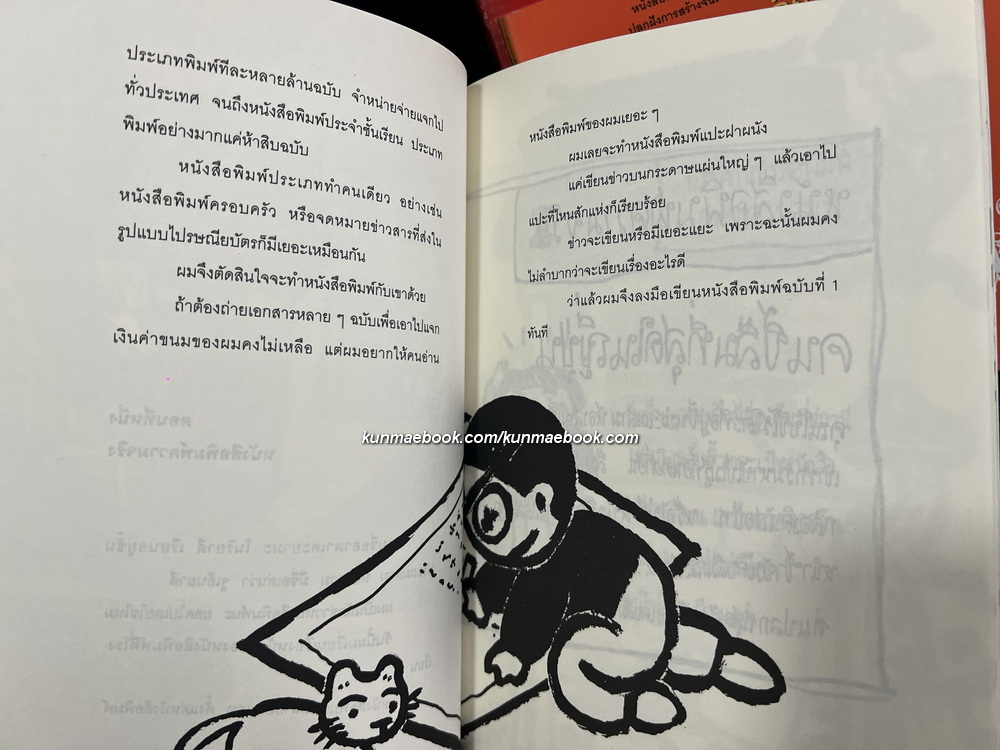 ประเภทพิมพ์ทีละหลายล้านฉบับ จำหน่ายจ่ายแจกไป
ทั่วประเทศ จนถึงหนังสือพิมพ์ประจำชั้นเรียน ประเภท
พิมพ์อย่างมากแค่ห้าสิบฉบับ
หนังสือพิมพ์ประเภททำคนเดียว อย่างเช่น
หนังสือพิมพ์ครอบครัว หรือจดหมายข่าวสารที่ส่งใน
รูปแบบไปรษณียบัตรก็มีเยอะเหมือนกัน
ผมจึงตัดสินใจจะทำหนังสือพิมพ์กับเขาด้วย
ถ้าต้องถ่ายเอกสารหลาย ๆ ฉบับเพื่อเอาไปแจก
เงินค่าขนมของผมคงไม่เหลือ แต่ผมอยากให้คนอ่าน
หนังสือพิมพ์ของผมเยอะ ๆ
ผมเลยจะทำหนังสือพิมพ์แปะฝาผนัง
แค่เขียนข่าวบนกระดาษแผ่นใหญ่ ๆ แล้วเอาไป
แปะที่ไหนสักแห่งก็เรียบร้อย
ข่าวจะเขียนหรือมีเยอะแยะ เพราะฉะนั้นผมคง
ไม่ลำบากว่าจะเขียนเรื่องอะไรดี
ว่าแล้วผมจึงลงมือเขียนหนังสือพิมพ์ฉบับที่ 1
ทันที
kunmaebook.com/kunmaebook.com